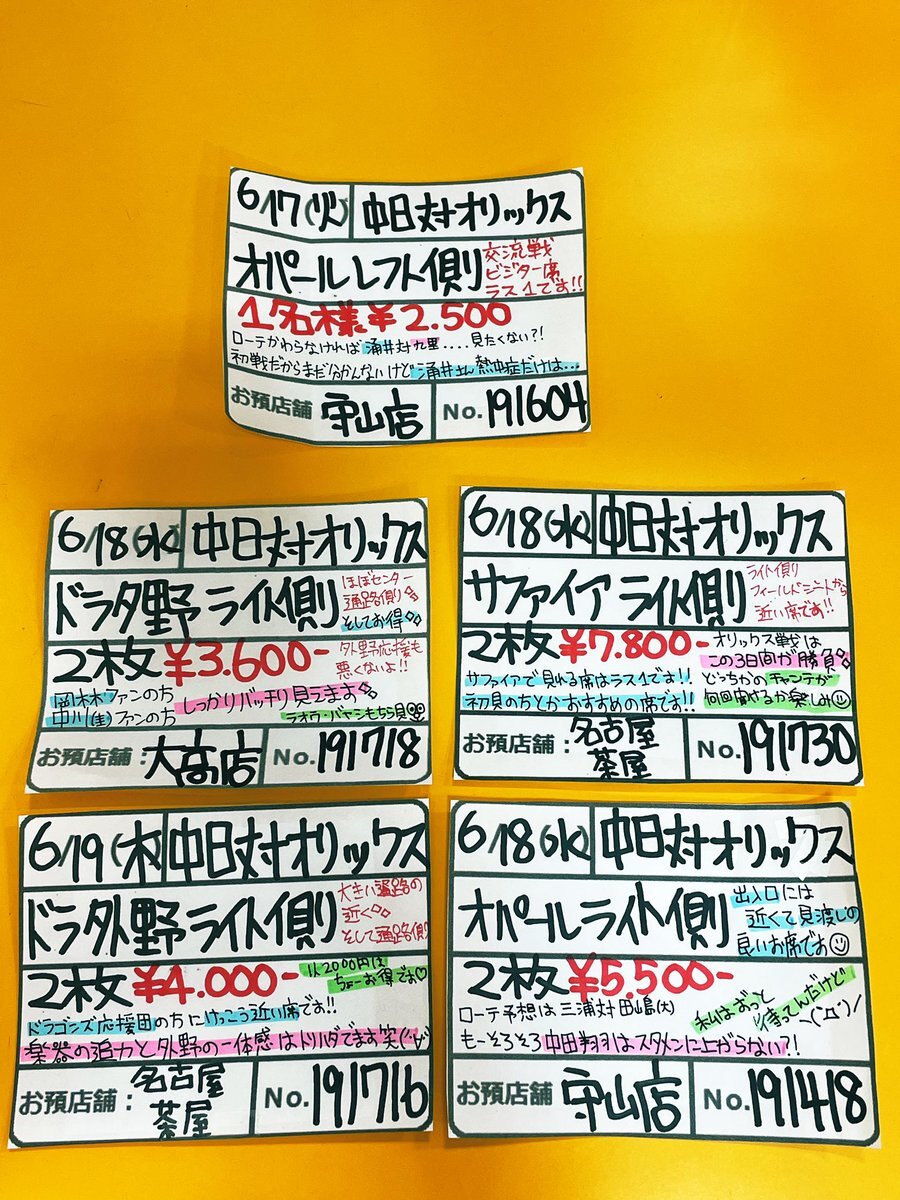 6/17(火) 中日対オリックス
オパールレフト側
交流戦
ビジター席
ラス1です!!
1名様¥2.500
ローテかわらなければ涌井対九里....見たくない?!
初戦だからまだ分かんないけど涌井さん熱中症だけは...
お預店舗 守山店 No.191604
6/18(水) 中日対オリックス
ドラ外野ライト側
ほぼセンター
通路側り
そしてお得
2枚¥3.600-
外野応援も
悪くないよ!!
岡林ファンの方
中川(圭)ファンの方
しっかりバッチリ見えます
ラオウ・バヤシもちら見
お預店舗: 大高店 No.191718
6/18(水) 中日対オリックス
サファイアライト側
ライト側
フィールドシートから
近い席です!!
2枚¥7.800-
オリックス戦は
この3日間が勝負
サファイアで見れる席はラス1です!!
初見の方とかおすすめの席です!!
どっちかのチャンテが
何回聞けるか楽しみ
お預店舗: 名古屋
茶屋
No.191730
6/19(木) 中日対オリックス
ドラ外野ライト側
大きい通路の
近く
そして通路側
2枚¥4.000-
1人2000円は
ちょーお得です♡
ドラゴンズ応援団の方にけっこう近い席です!!
楽器の迫力と外野の一体感はトリハダてます笑
お預店舗: 名古屋
茶屋
No.191716
6/18(水) 中日対オリックス
オパールライト側
出入口には
近くて見渡しの
良いお席です
2枚¥5.500-
ローテ予想は三浦対田嶋(大)
私はずっと
待ってんだけど
もーそろそろ中田翔はスタメンに上がらない?!
お預店舗 守山店 No.191418